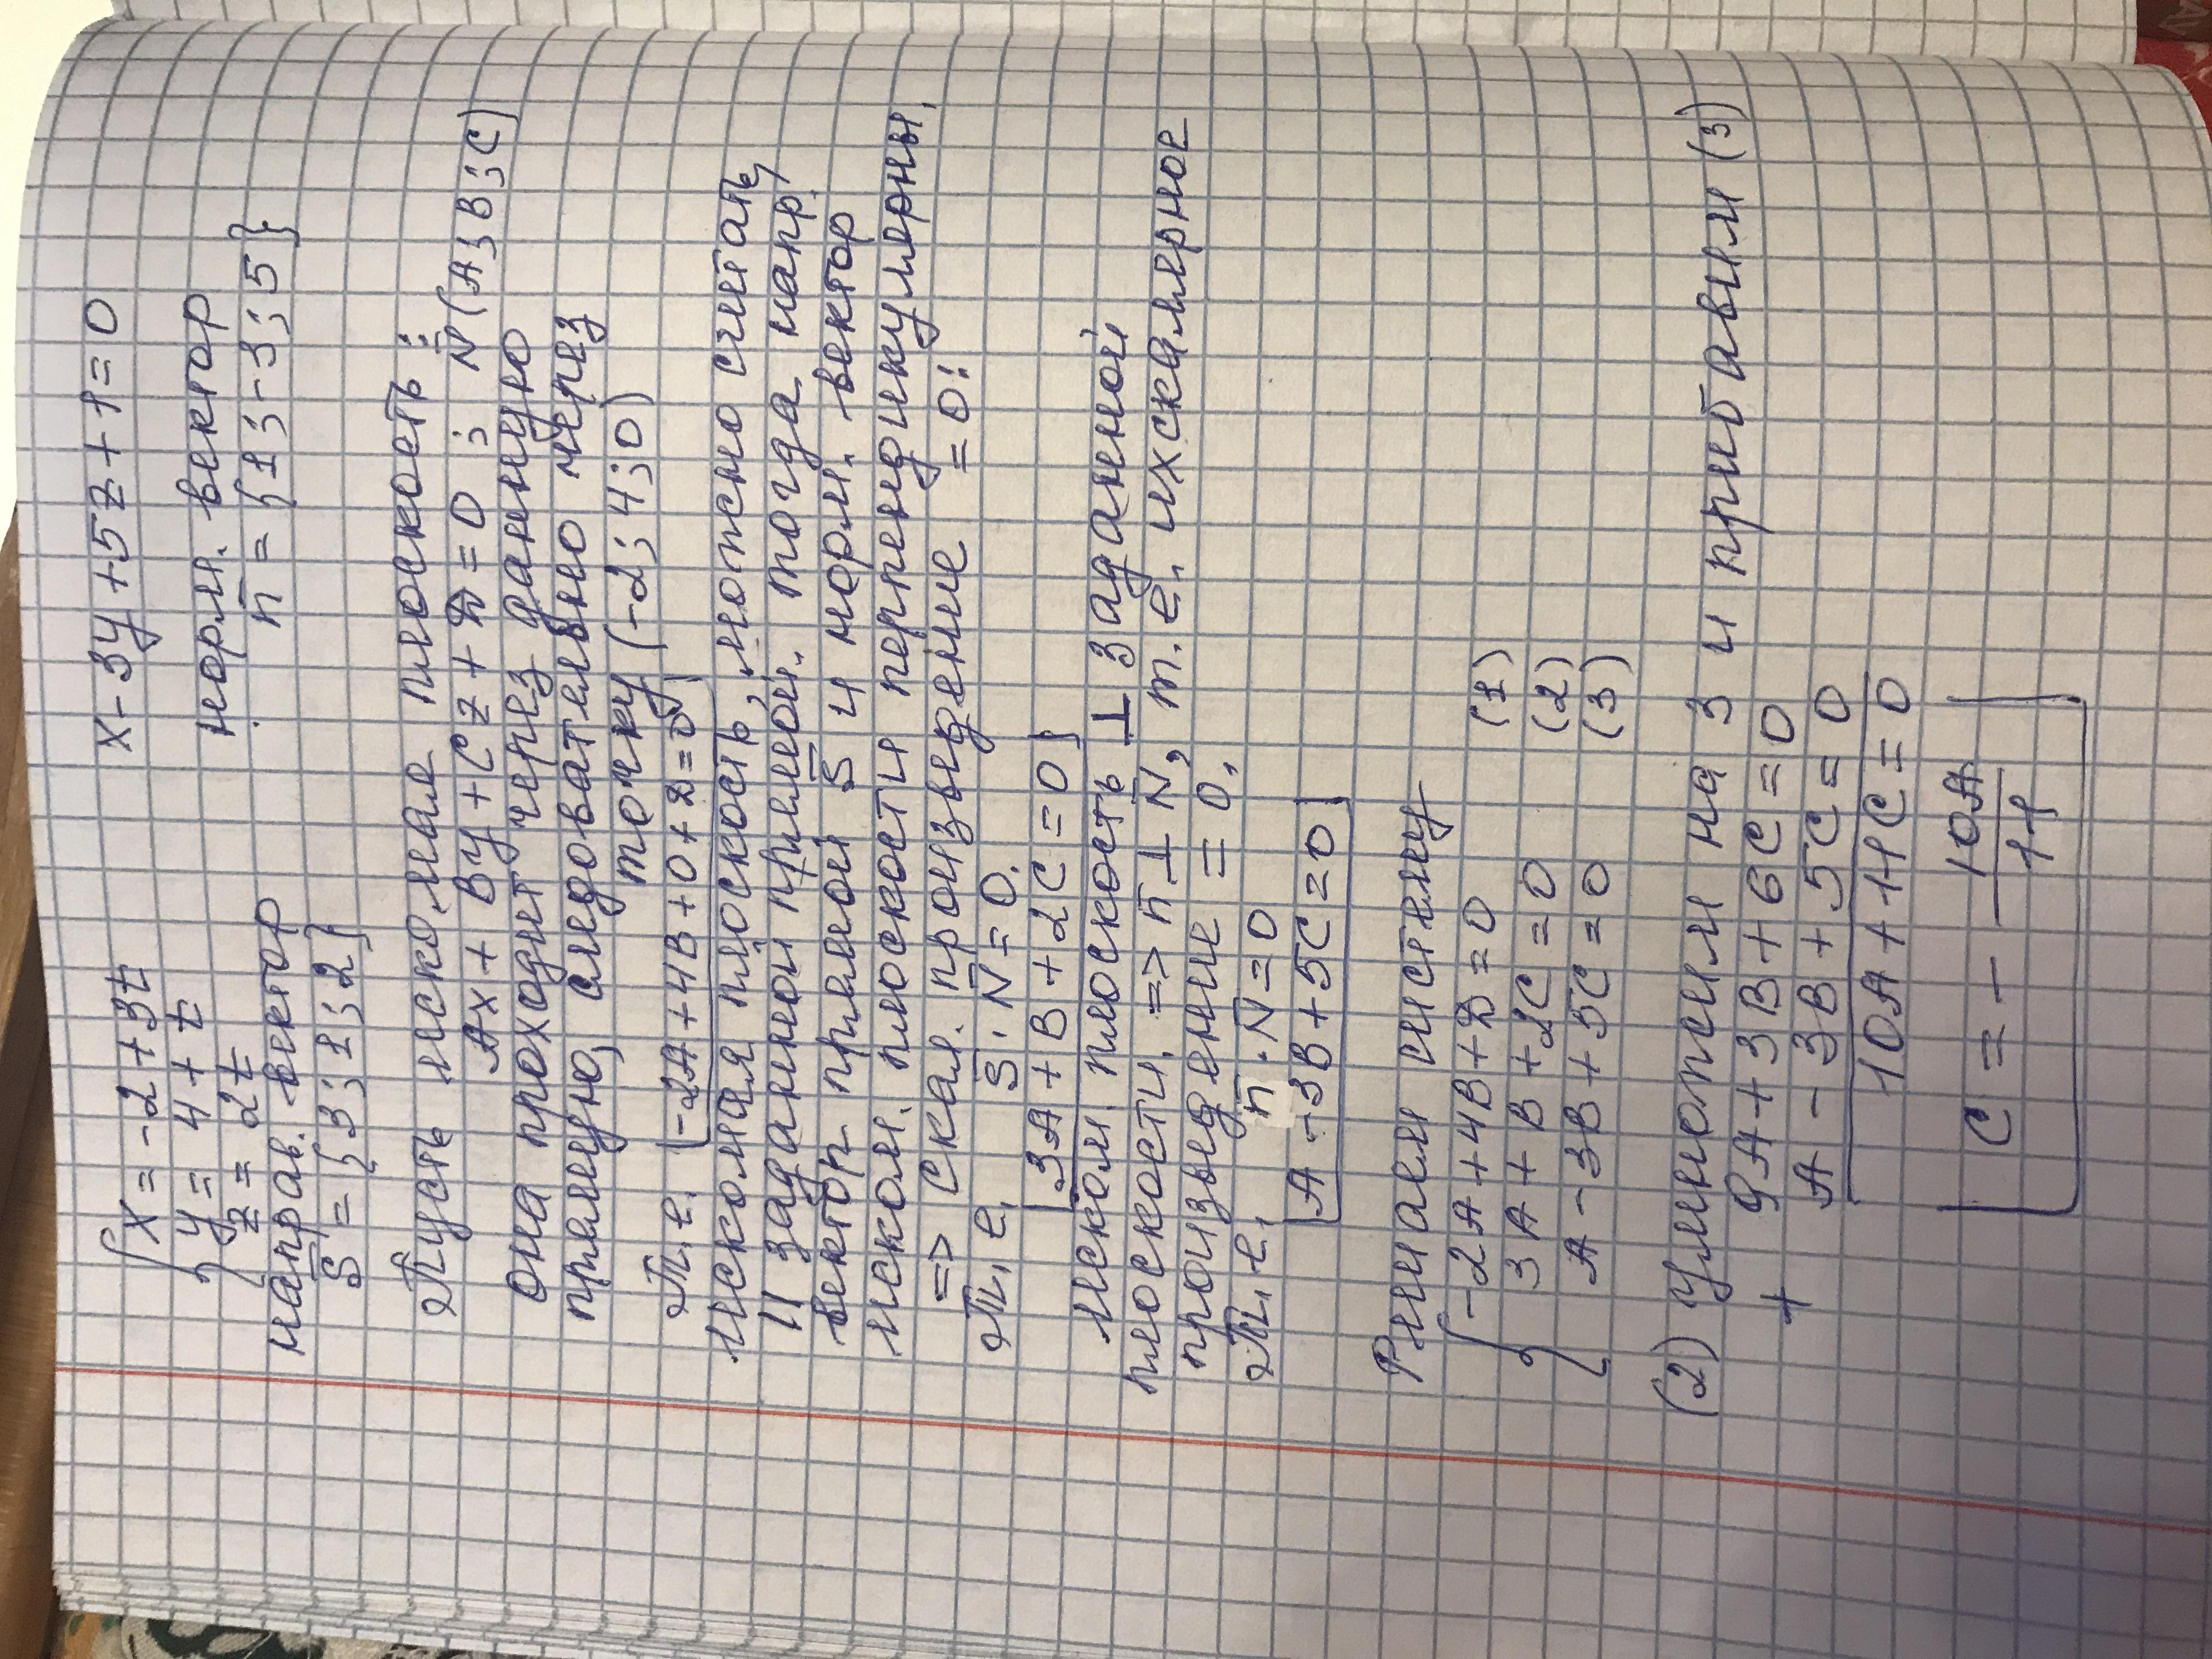 x = -2 + 3t     x - 3y + 5z + 1 = 0
y = 4 + t
z = 2t     норм. вектор
направ. вектор     n̄ = {1; -3; 5}
s̄ = {3; 1; 2}
Пусть искомая плоскость:
Ax + By + Cz + D = 0; N̄(A; B; C)
Она проходит через данную
прямую, следовательно через
точку (-2; 4; 0)
Т.е. -2A + 4B + 0 + D = 0
искомая плоскость, можно считать,
|| заданной прямой. тогда напр.
вектор прямой s̄ и норм. вектор
иском. плоскости перпендикулярны.
=> скал. произведение = 0:
Т.е. s̄ · N̄ = 0.
3A + B + 2C = 0
иском плоскость ⊥ заданной
плоскости. => n̄ ⊥ N̄, т.е. их скалярное
произведение = 0.
Т.е. n̄ · N̄ = 0
A - 3B + 5C = 0
Решаем систему
-2A + 4B + D = 0     (1)
3A + B + 2C = 0     (2)
A - 3B + 5C = 0     (3)
(2) умножим на 3 и прибавим (3)
+ 9A + 3B + 6C = 0
A - 3B + 5C = 0
10A + 11C = 0
C = - 10A/11